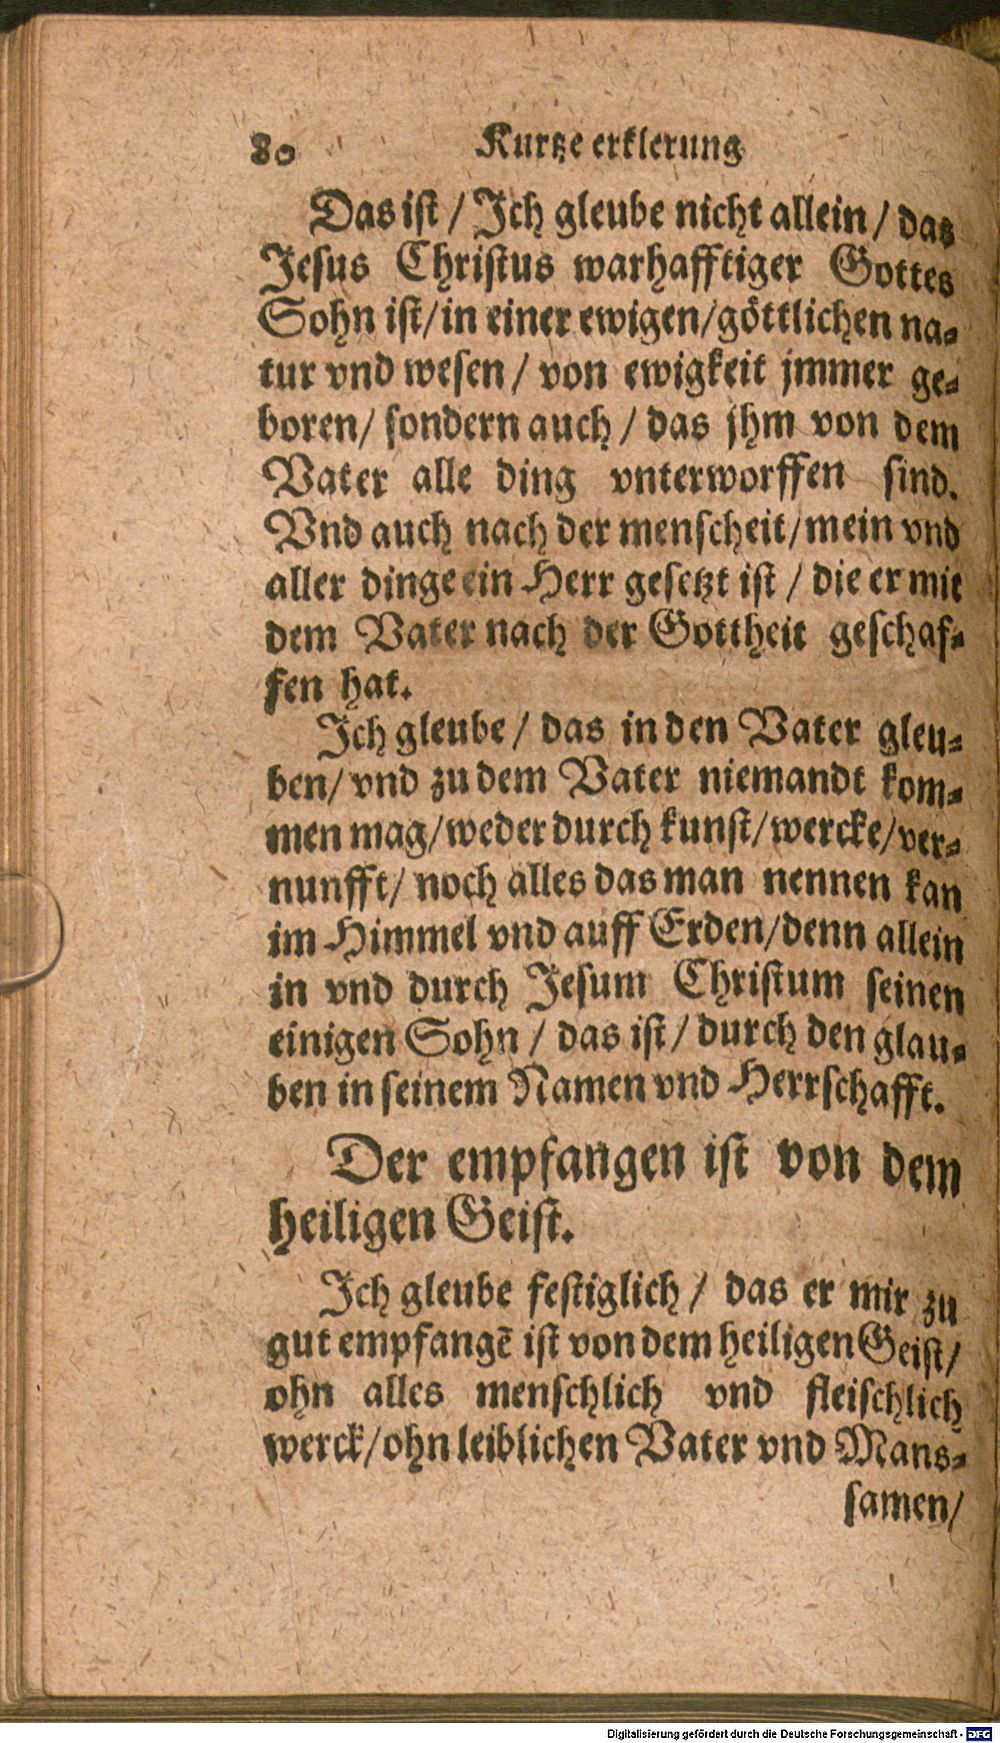 80 Kurtze erklerung
Das ist / Ich gleube nicht allein / das
Jesus Christus warhafftiger Gottes
Sohn ist/in einer ewigen/göttlichen na-
tur vnd wesen / von ewigkeit jmmer ge-
boren/ sondern auch / das jhm von dem
Vater alle ding vnterworffen sind.
Vnd auch nach der menscheit/mein vnd
aller dinge ein Herr gesetzt ist / die er mit
dem Vater nach der Gottheit geschaf-
fen hat.
Ich gleube / das in den Vater gleu-
ben/ vnd zu dem Vater niemandt kom-
men mag/weder durch kunst/wercke/ver-
nunfft/ noch alles das man nennen kan
im Himmel vnd auff Erden/denn allein
in vnd durch Jesum Christum seinen
einigen Sohn / das ist/ durch den glau-
ben in seinem Namen vnd Herrschafft.
Der empfangen ist von dem
heiligen Geist.
Ich gleube festiglich / das er mir zu
gut empfangẽ ist von dem heiligen Geist/
ohn alles menschlich vnd fleischlich
werck/ohn leiblichen Vater vnd Mans-
samen/
Digitalisierung gefördert durch die Deutsche Forschungsgemeinschaft - DFG